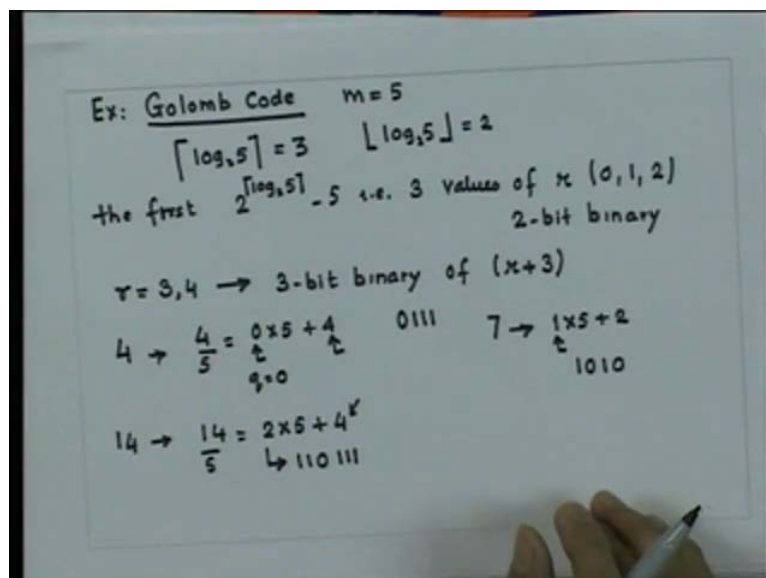 Ex: Golomb Code m = 5
⌈log₂5⌉ = 3 ⌊log₂5⌋ = 2
the first 2^⌈log₂5⌉ - 5 i.e. 3 values of r (0, 1, 2)
2-bit binary
r = 3, 4 → 3-bit binary of (r+3)
4 → 4/5 = 0×5 + 4 0111 7 → 1×5 + 2
q=0 1010
14 → 14/5 = 2×5 + 4
↳ 110 111